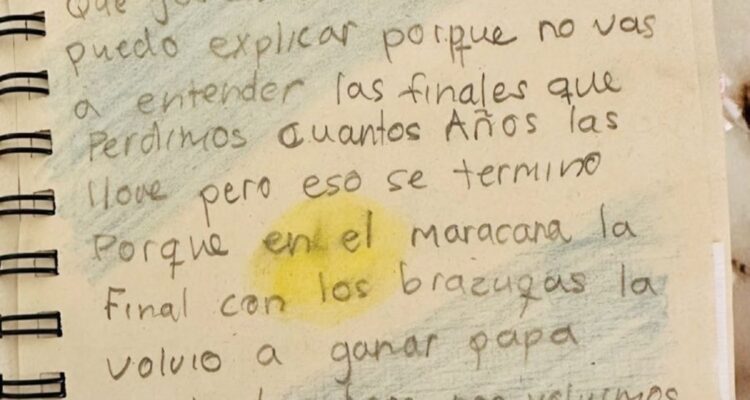 Que
puedo explicar porque no vas
a entender las finales que
Perdimos cuantos Años las
llove pero eso se termino
Porque en el maracana la
Final con los brazugas la
volvio a ganar papa